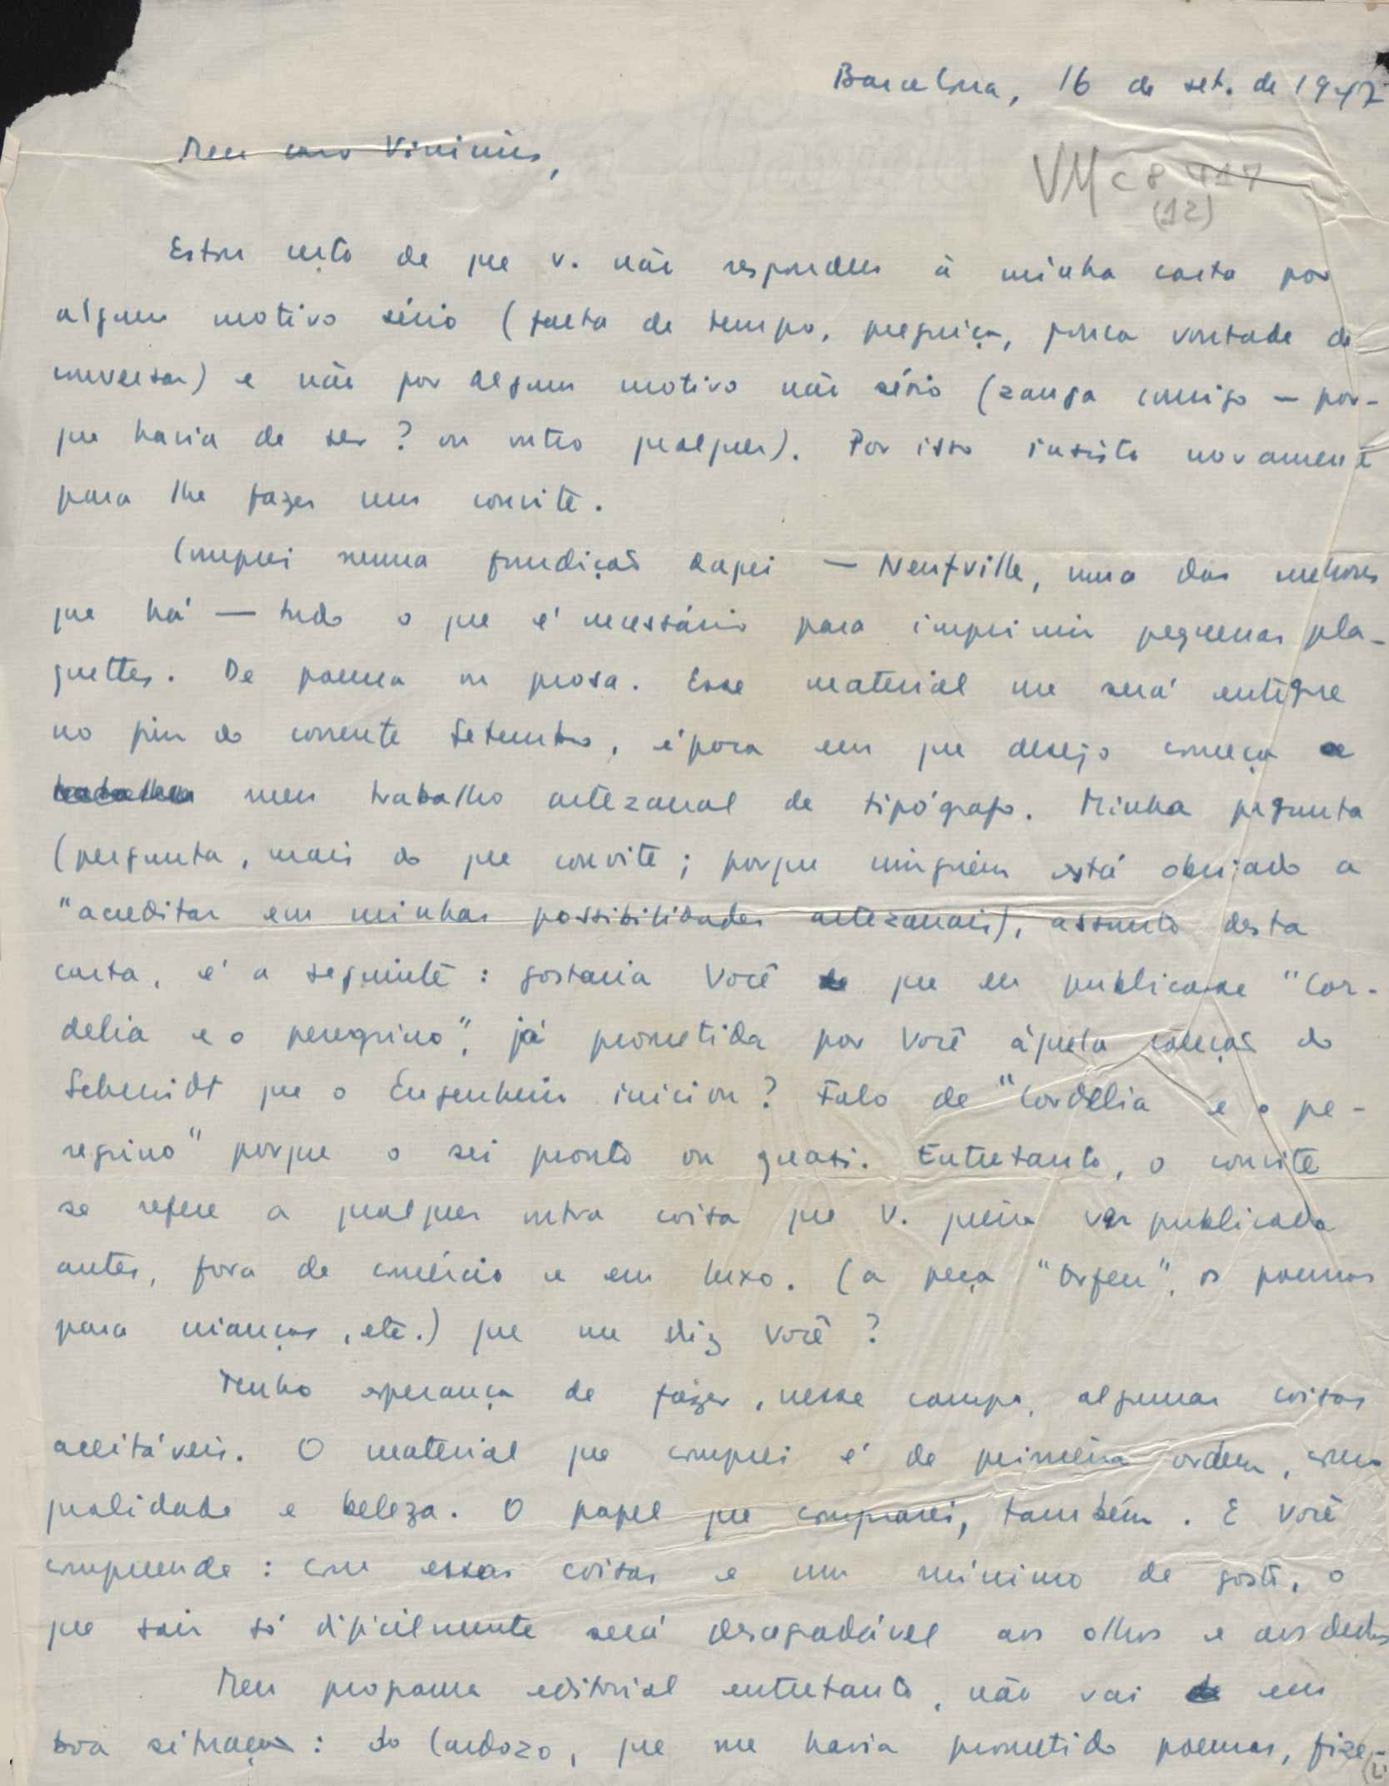 Barcelona, 16 de set. de 1947
Meu caro Vinicius,
VM c 8 917
(12)
Estou certo de que v. não respondeu à minha carta por
algum motivo sério (falta de tempo, preguiça, pouca vontade de
conversar) e não por algum motivo não sério (zanga comigo — por-
que havia de ser? ou outro qualquer). Por isso insisto novamente
para lhe fazer um convite.
Comprei numa fundição daqui — Neufville, uma das melhores
que há — tudo o que é necessário para imprimir pequenas pla-
quettes. De poema ou prosa. Esse material me será entregue
no fim do corrente Setembro, época em que desejo começar
meu trabalho artezanal de tipógrafo. Minha pergunta
(pergunta, mais do que convite; porque ninguém está obrigado a
"acreditar em minhas possibilidades artezanais), assunto desta
carta, é a seguinte: gostaria Você que eu publicasse "Cor-
delia e o peregrino", já prometida por Você àquela coleção do
Schmidt que o Engenheiro iniciou? Falo de "Cordelia e o pe-
regrino" porque o sei pronto ou quasi. Entretanto, o convite
se refere a qualquer outra coisa que V. queira ver publicada
antes, fora de comércio e em luxo. (a peça "Orfeu", os poemas
para crianças, etc.) que me diz Você?
Tenho esperança de fazer, nesse campo, algumas coisas
aceitáveis. O material que comprei é de primeira ordem, como
qualidade e beleza. O papel que comprarei, também. E Você
compreende: com essas coisas e um mínimo de gosto, o
que sair só dificilmente será desagradável aos olhos e aos dedos
Meu programa editorial entretanto, não vai em
boa situação: do Cardozo, que me havia prometido poemas, fize-